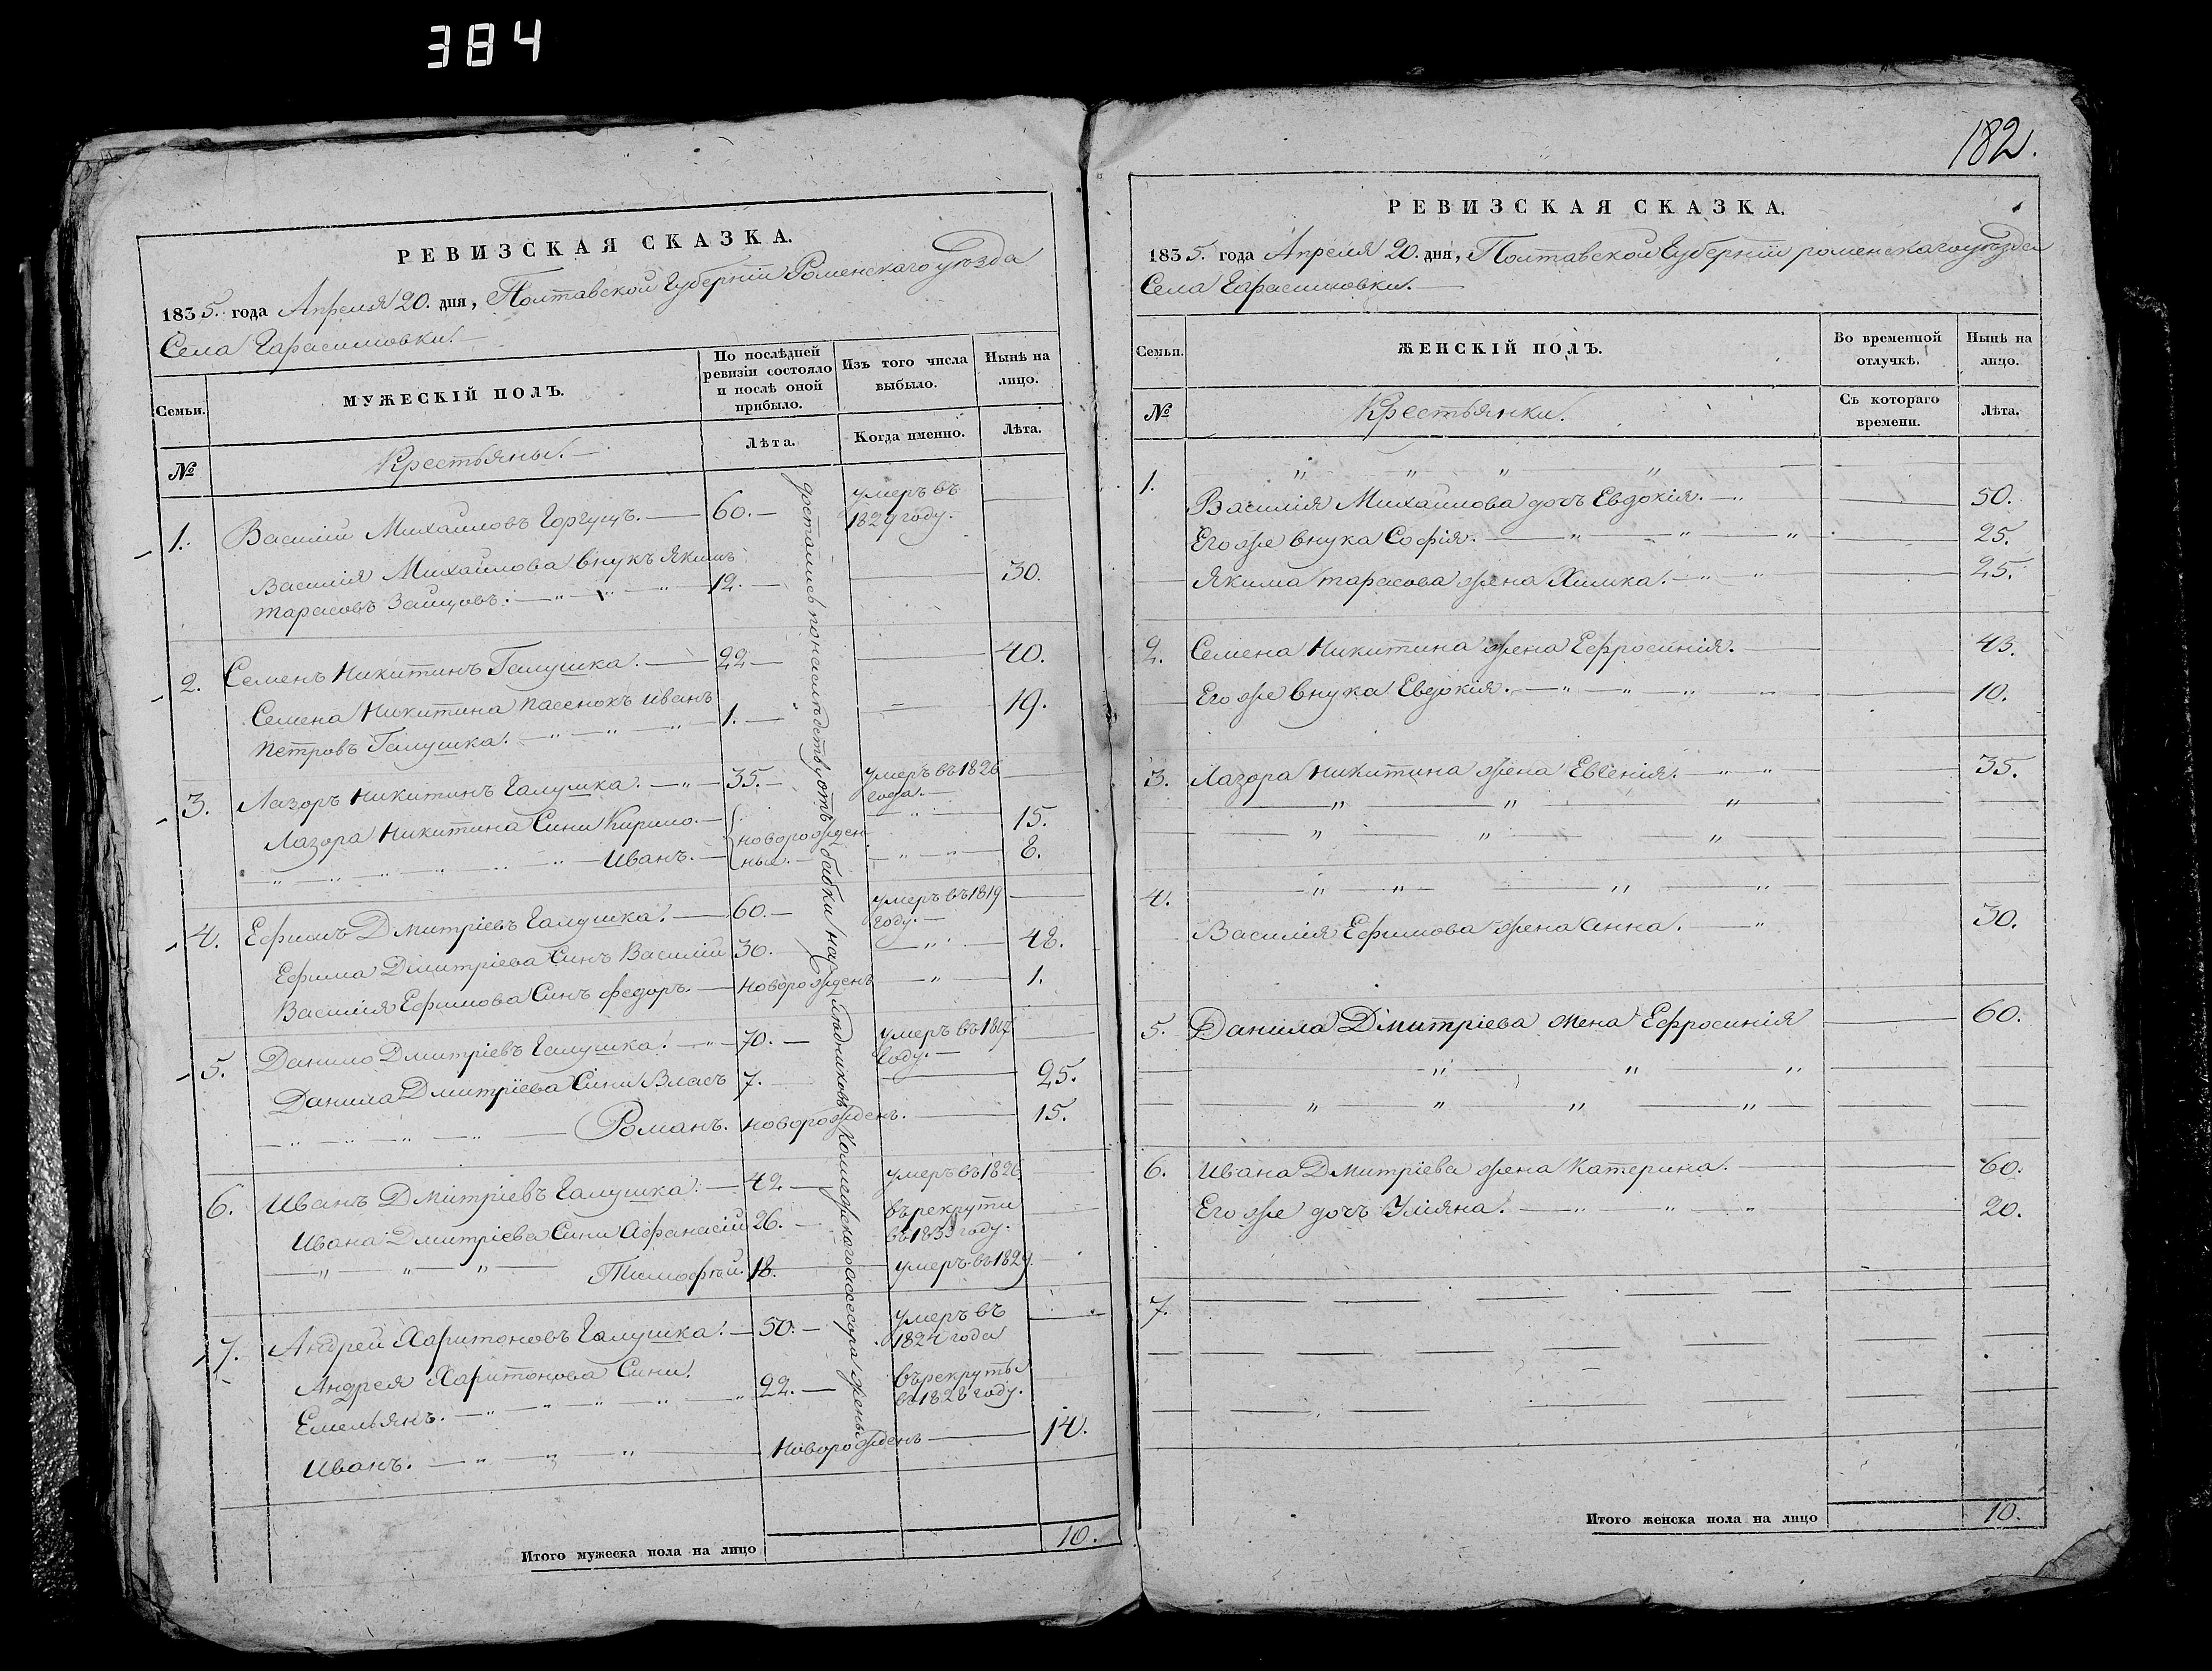 384
РЕВИЗСКАЯ СКАЗКА.
1835. года Апреля 20. дня, Полтавской Губернїи Роменскаго уѣзда
Села Гарасимовки.
Семьи.
МУЖЕСКІЙ ПОЛЪ.
По послѣдней ревизіи состояло и послѣ оной прибыло.
Изъ того числа выбыло.
Нынѣ на лицо.
№
Крестьяны.
Лѣта.
Когда именно.
Лѣта.
1. Василій Михайловъ 60. умеръ въ
1829 году.
Василія Михайлова внукъ Якимъ
тарасовъ Зайцовъ. 12. 30.
2. Семенъ Никитинъ Галушка. 22 40.
Семена Никитина пасенокъ иванъ
петровъ Галушка. 1. 19.
3. Лазоръ Никитинъ Галушка. 35. умеръ въ 1826
года.
Лазора Никитина Сини Кирило. новорожден 15.
Иванъ. ные. 8.
4. Ефимъ Дмитріевъ Галушка. 60. умеръ въ 1819
году.
Ефима Дмитріева Синъ Василій 30. 48.
Василія Ефимова Синъ федоръ. новорожденъ 1.
5. Данило Дмитріевъ Галушка. 70. умеръ въ
году.
Данила Дмитріева Сини Власъ 7. 25.
Романъ. новорожденъ. 15.
6. Иванъ Дмитріевъ Галушка. 42 умеръ въ 1826
Ивана Дмитріева Сини Афанасій 26. въ рекрути
въ 1833 году.
Тимофѣй. 18. умеръ въ 1829.
7. Андрей Харитоновъ Галушка. 50. умеръ въ
года
Андрея Харитонова Сини
Емельянъ. 22. въ рекруты
въ 1828 году.
Иванъ. Новорожденъ 14.
Итого мужеска пола на лицо 10.
достались по наследству отъ бабки наследниковъ Колежскаго асесора жены
182.
РЕВИЗСКАЯ СКАЗКА.
1835. года Апреля 20. дня, Полтавской Губернїи роменскаго уѣзда
Села Гарасимовки.
Семьи.
ЖЕНСКІЙ ПОЛЪ.
Во временной отлучкѣ.
Нынѣ на лицо.
№
Крестьянки.
Съ котораго времени.
Лѣта.
1.
Василія Михайлова дочъ Евдокія. 50.
Его же внука Софія. 25.
Якима тарасова жена Химка. 25.
2. Семена Никитина жена Ефросинія. 43.
Его же внука Евдокія. 10.
3. Лазора Никитина жена Евгенія. 35.
4.
Василія Ефимова жена анна. 30.
5. Данила Дмитріева жена Ефросинія 60.
6. Ивана Дмитріева жена Катерина. 60.
Его же дочъ Уліяна. 20.
7.
Итого женска пола на лицо 10.